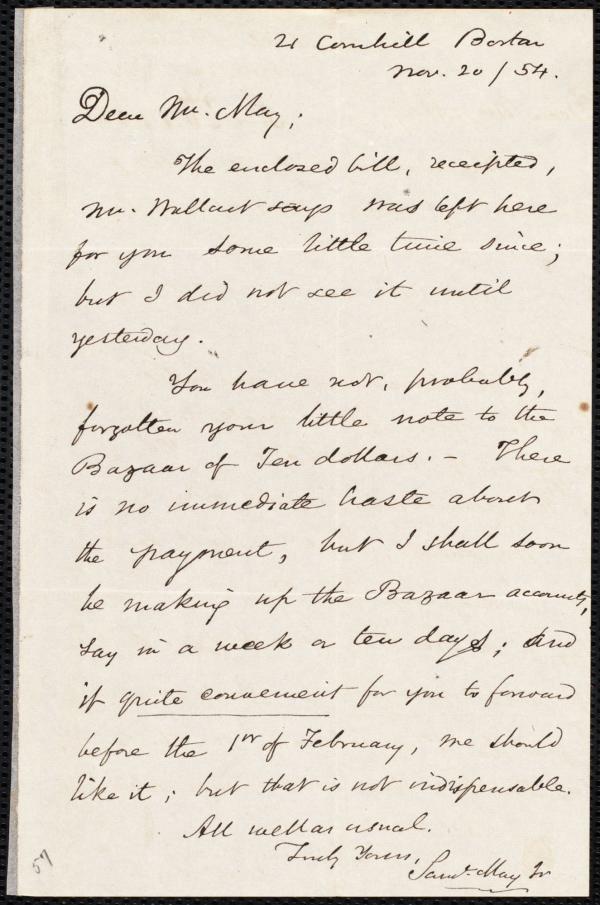 21 Cornhill Boston
Nov. 20 / 54.
Dear Mr. May;
The enclosed bill, receipted,
Mr. Wallcut says was left here
for you some little time since;
but I did not see it until
yesterday.
You have not, probably,
forgotten your little note to the
Bazaar of Ten dollars. – There
is no immediate haste about
the payment, but I shall soon
be making up the Bazaar accounts,
say in a week or ten days; and
if quite convenient for you to forward
before the 1st of February, we should
like it; but that is not indispensable.
All well as usual.
Truly Yours,
Saml. May Jr
57